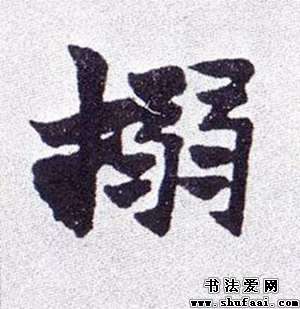 搦
书法爱网
www.shufaai.com